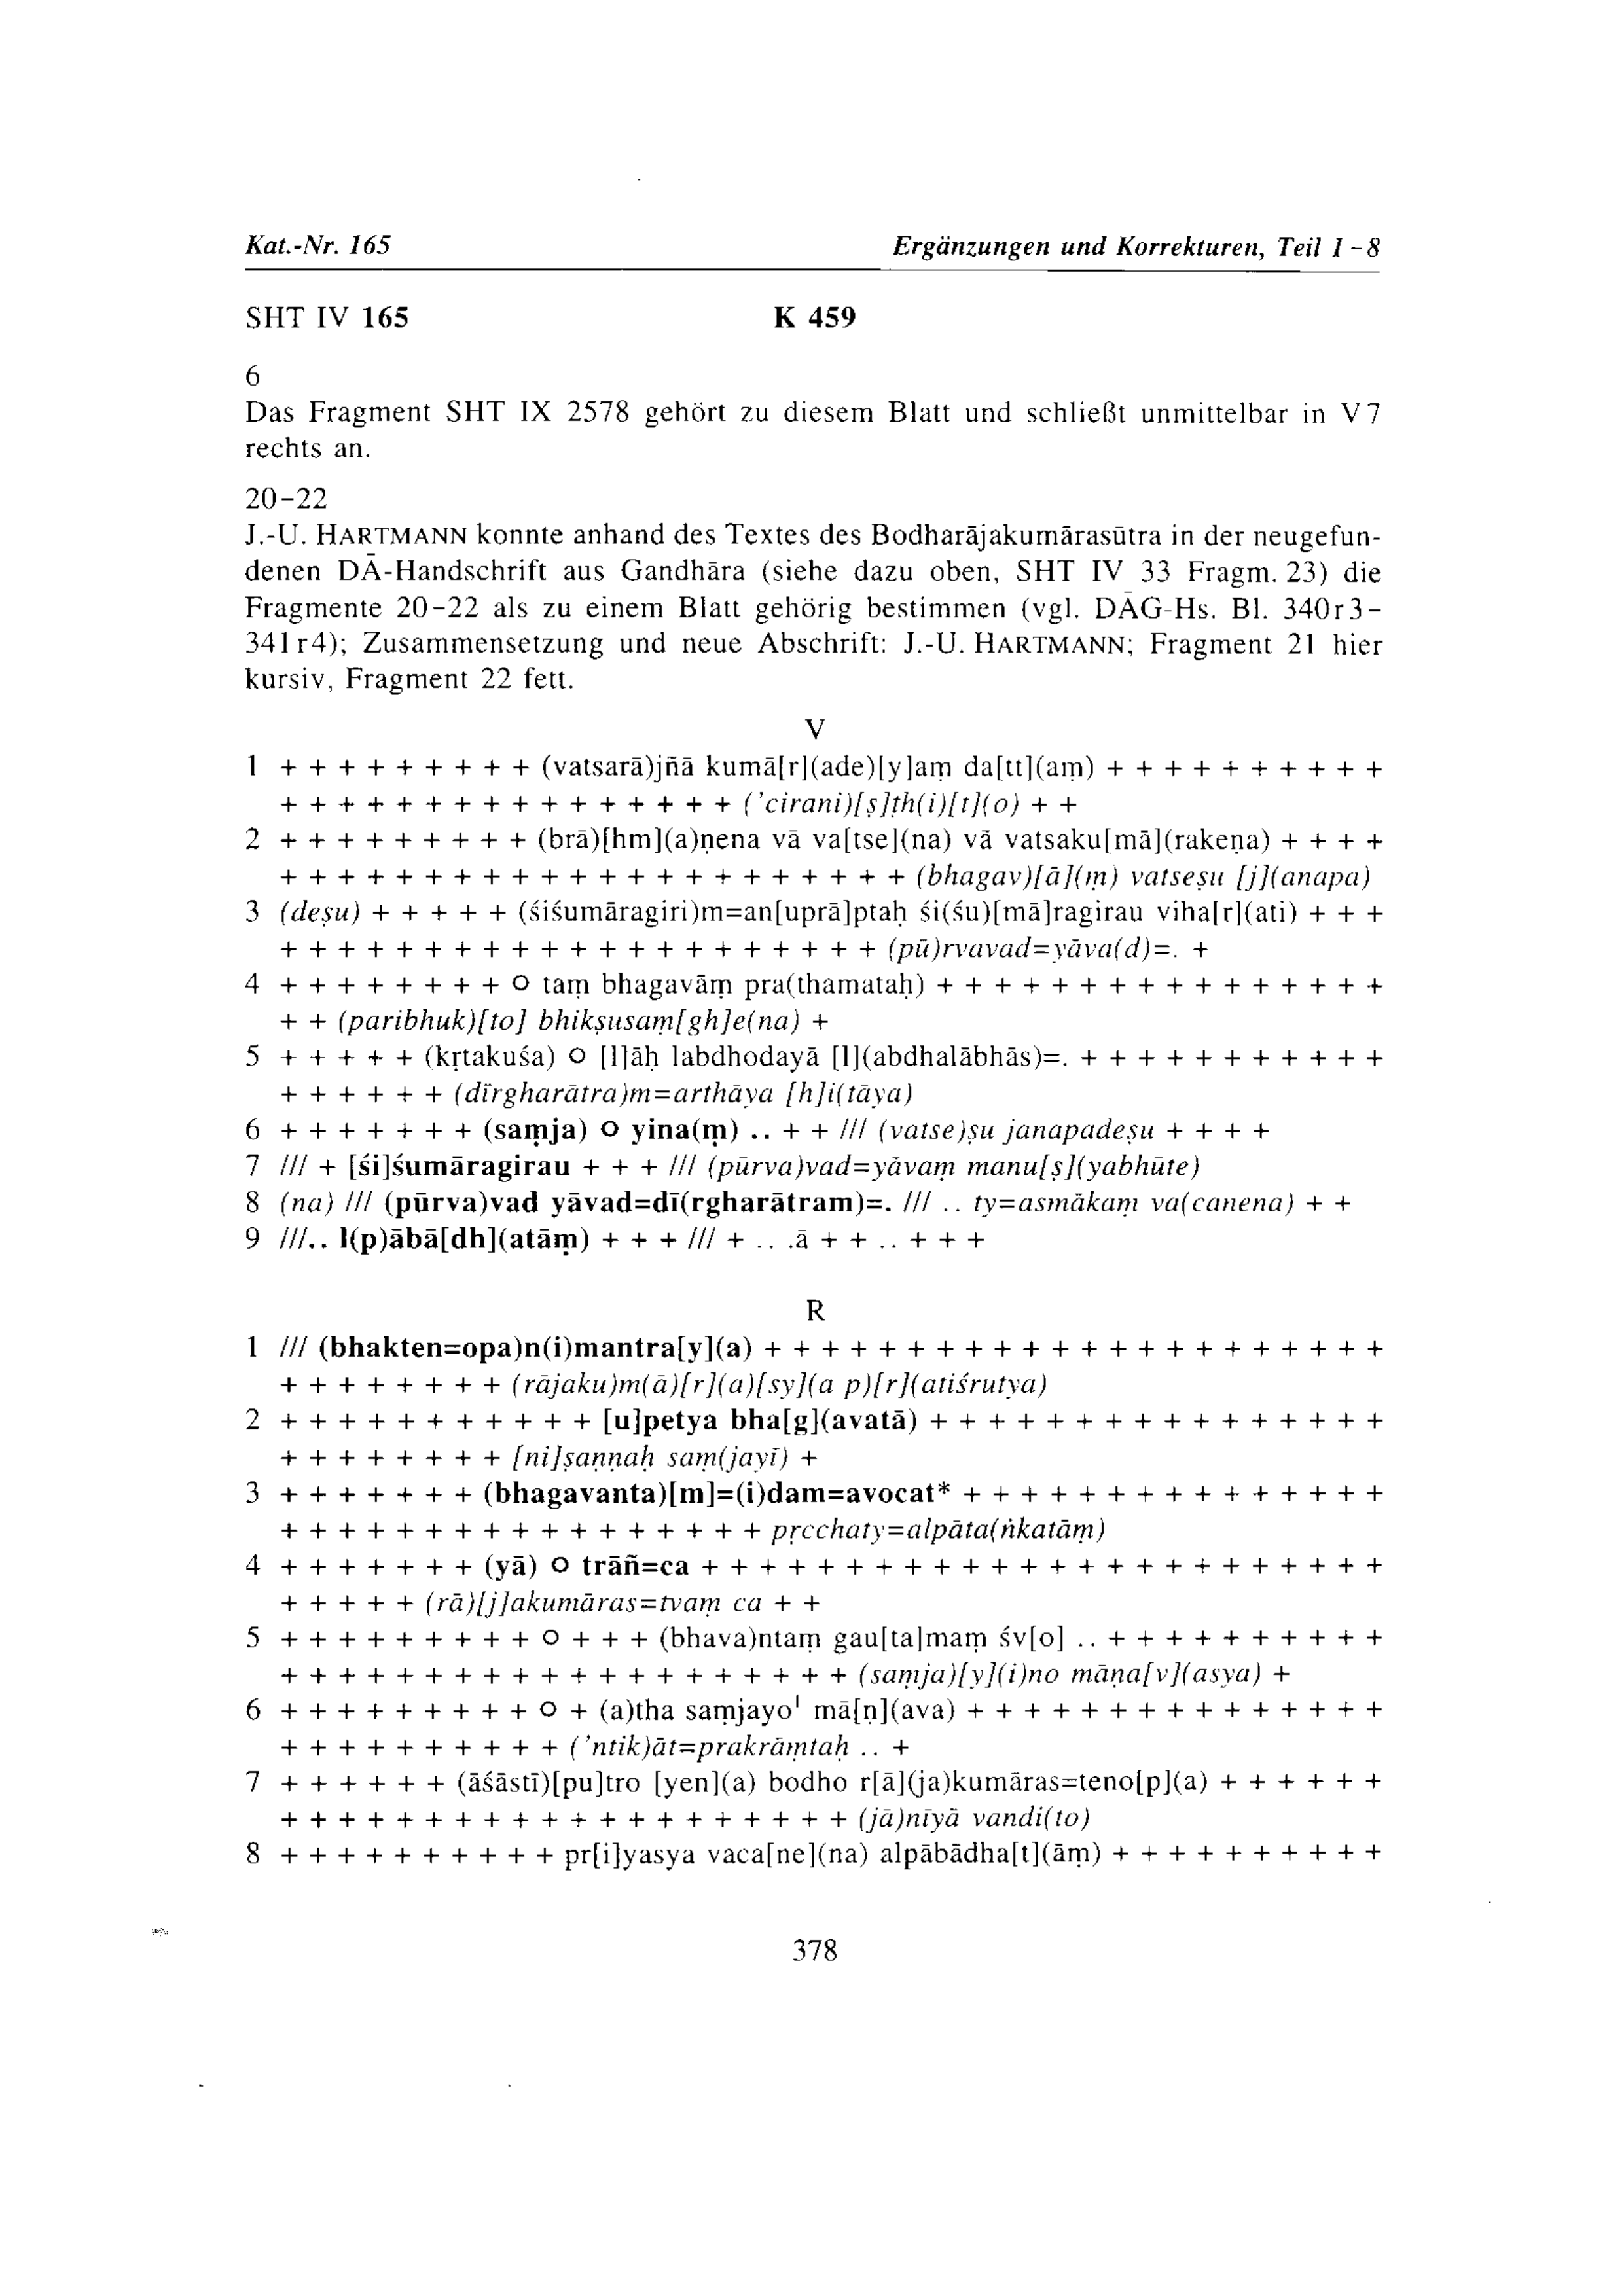 Kat.-Nr. 165 Ergänzungen und Korrekturen, Teil 1-8
SHT IV 165 K 459
6
Das Fragment SHT IX 2578 gehört zu diesem Blatt und schließt unmittelbar in V 7
rechts an.
20-22
J.-U. HARTMANN konnte anhand des Textes des Bodharājakumārasūtra in der neugefun-
denen DĀ-Handschrift aus Gandhāra (siehe dazu oben, SHT IV 33 Fragm. 23) die
Fragmente 20-22 als zu einem Blatt gehörig bestimmen (vgl. DĀG-Hs. Bl. 340r3-
341r4); Zusammensetzung und neue Abschrift: J.-U. HARTMANN; Fragment 21 hier
kursiv, Fragment 22 fett.
V
1 + + + + + + + + + (vatsarā)jñā kumā[r](ade)[y]aṃ da[tt](aṃ) + + + + + + + + + +
+ + + + + + + + + + + + + + + + (’cirani)[ṣ]ṭh(i)[t](o) + +
2 + + + + + + + + + (brā)[hm](a)ṇena vā va[tse](na) vā vatsaku[mā](rakeṇa) + + + +
+ + + + + + + + + + + + + + + + + + + + + + (bhagav)[ā](ṃ) vatseṣu [j](anapa)
3 (deṣu) + + + + + (śiśumāragiri)m=an[uprā]ptaḥ śi(śu)[mā]ragirau viha[r](ati) + + +
+ + + + + + + + + + + + + + + + + + + + + (pū)rvavad=yāva(d)=. +
4 + + + + + + + + O taṃ bhagavāṃ pra(thamataḥ) + + + + + + + + + + + + + + + +
+ + (paribhuk)[to] bhikṣusaṃ[gh]e(na) +
5 + + + + + (kṛtakuśa) O [l]āḥ labdhodayā [l](abdhalābhās)=. + + + + + + + + + + +
+ + + + + + (dīrgharātra)m=arthāya [h]i(tāya)
6 + + + + + + + (saṃja) O yina(ṃ) .. + + /// (vatse)ṣu janapadeṣu + + + +
7 /// + [śi]śumāragirau + + + /// (pūrva)vad=yāvaṃ manu[ṣ](yabhūte)
8 (na) /// (pūrva)vad yāvad=dī(rgharātram)=. /// .. ty=asmākaṃ va(canena) + +
9 ///.. l(p)ābā[dh](atāṃ) + + + /// + .. .ā + + .. + + +
R
1 /// (bhakten=opa)n(i)mantra[y](a) + + + + + + + + + + + + + + + + + + + + + +
+ + + + + + + + (rājaku)m(ā)[r](a)[sy](a p)[r](atiśrutya)
2 + + + + + + + + + + + [u]petya bha[g](avatā) + + + + + + + + + + + + + + + +
+ + + + + + + + [ni]ṣaṇṇaḥ saṃ(jayī) +
3 + + + + + + + (bhagavanta)[m]=(i)dam=avocat* + + + + + + + + + + + + + + +
+ + + + + + + + + + + + + + + + + pṛcchaty=alpāta(ṅkatāṃ)
4 + + + + + + + (yā) O trāñ=ca + + + + + + + + + + + + + + + + + + + + + + + +
+ + + + + (rā)[j]akumāras=tvaṃ ca + +
5 + + + + + + + + + O + + + (bhava)ntaṃ gau[ta]maṃ śv[o] .. + + + + + + + + + +
+ + + + + + + + + + + + + + + + + + + + (saṃja)[y](i)no māṇa[v](asya) +
6 + + + + + + + + + O + (a)tha saṃjayo¹ mā[ṇ](ava) + + + + + + + + + + + + + + +
+ + + + + + + + + + (’ntik)āt=prakrāṃtaḥ .. +
7 + + + + + + (āśāstī)[pu]tro [yen](a) bodho r[ā](ja)kumāras=teno[p](a) + + + + + +
+ + + + + + + + + + + + + + + + + + + + (jā)nīyā vandi(to)
8 + + + + + + + + + + pr[i]yasya vaca[ne](na) alpābādha[t](āṃ) + + + + + + + + + +
378